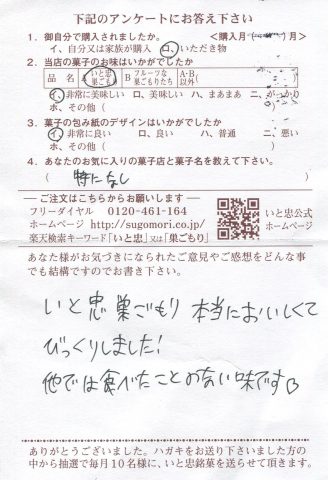 下記のアンケートにお答え下さい
1. 御自分で購入されましたか。 <購入月 月>
イ、自分又は家族が購入 ロ、いただき物
2. 当店の菓子のお味はいかがでしたか
品名 A いと忠巣ごもり B フルーツな巣ごもりたち A・B以外
イ、非常に美味しい ロ、美味しい ハ、まあまあ ニ、がっかり
ホ、その他( )
3. 菓子の包み紙のデザインはいかがでしたか
イ、非常に良い ロ、良い ハ、普通 ニ、悪い
ホ、その他( )
4. あなたのお気に入りの菓子店と菓子名を教えて下さい。
( 特になし )
ご注文はこちらからお願いします
フリーダイヤル 0120-461-164
ホームページ http://sugomori.co.jp/
楽天検索キーワード「いと忠」又は「巣ごもり」
いと忠公式
ホームページ
あなた様がお気づきになられたご意見やご感想をどんな事
でも結構ですのでお書き下さい。
いと忠巣ごもり 本当においしくて
びっくりしました!
他では食べたことのない味です
ありがとうございました。ハガキをお送り下さいました方の
中から抽選で毎月10名様に、いと忠銘菓を送らせて頂きます。